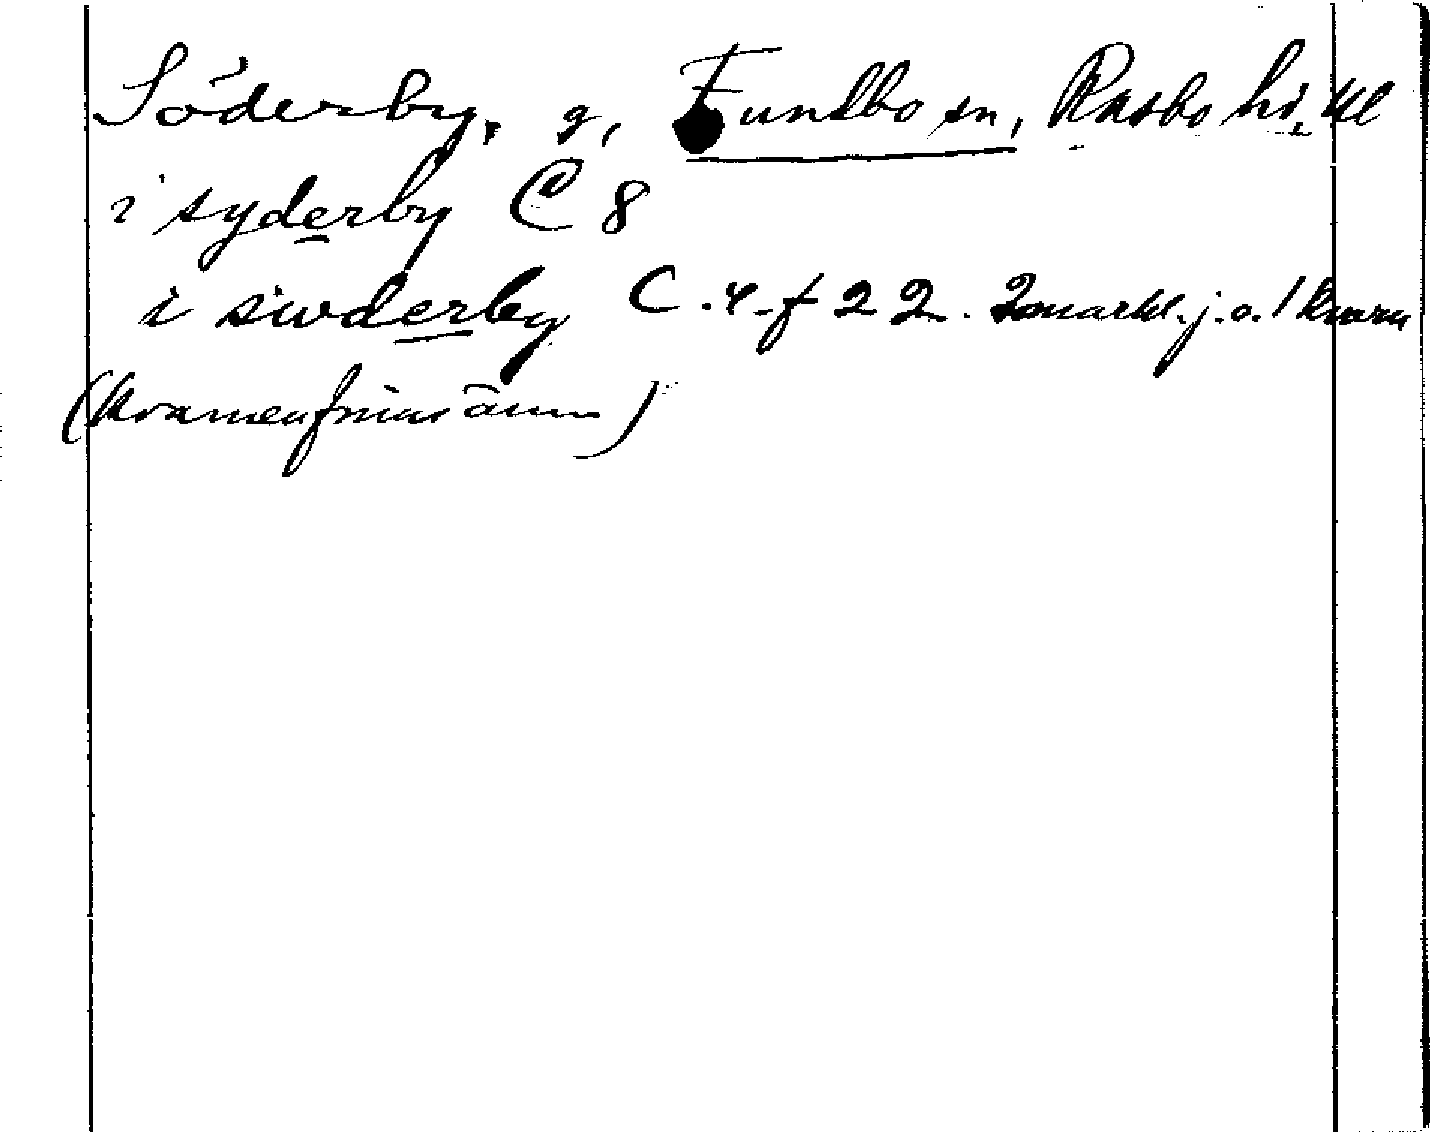 Söderby, g, Funbo sn, Rasbo hd, Ul
i syderby C 8
i siwderby C. 4. f 22. 2 markl. j. o. 1 kvarn